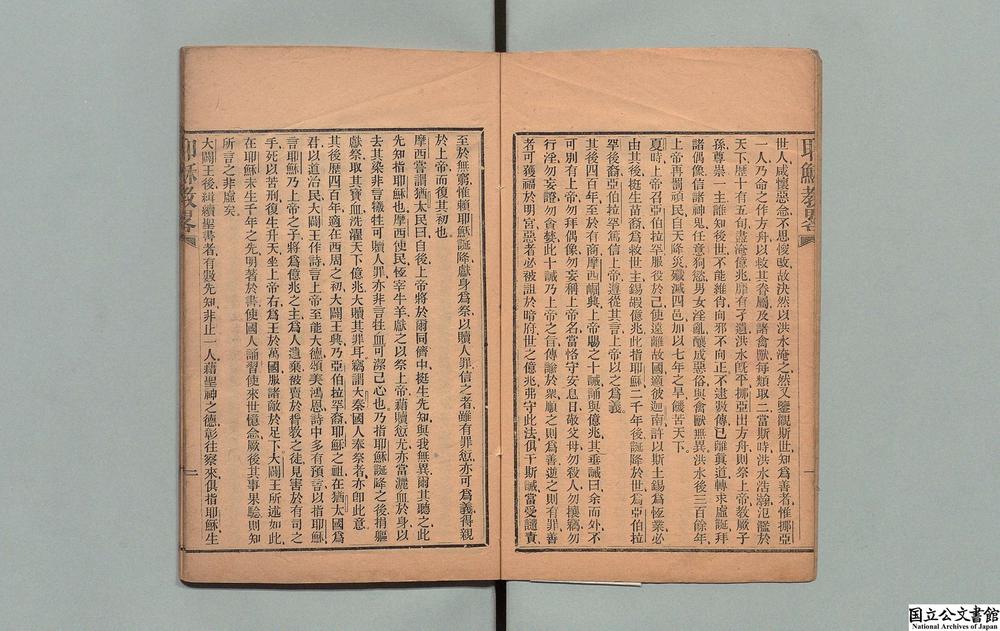 耶穌教畧
世人咸懷惡念不思悛改故決然以洪水淹之然又鑒觀斯世知為善者惟挪亞
一人乃命之作方舟以救其眷屬及諸禽獸每類取二當斯時洪水浩瀚氾濫於
天下歷十有五旬盡淹億兆靡有孑遺洪水旣平挪亞出方舟則祭上帝敎厥子
孫尊崇一主誰知後世不能維肖向邪不向正不逮數傳已離真道轉求虛誕拜
諸偶像信諸神鬼任意狥慾男女淫亂釀成惡俗與禽獸無異洪水後三百餘年
上帝再罰頑民自天降災殲滅四邑加以七年之旱饑苦天下
夏時上帝召亞伯拉罕服役於己使遠離故國適彼迦南許以斯土錫為恆業必
由其後挺生苗裔為救世主錫嘏億兆此指耶穌二千年後誕降於世為亞伯拉
罕後裔亞伯拉罕篤信上帝遵從其言上帝以之為義
其後四百年至於有商摩西崛興上帝賜之十誡誦與億兆其垂誡曰余而外不
可別有上帝勿拜偶像勿妄稱上帝名當恪守安息日敬父母勿殺人勿攘竊勿
行淫勿妄證勿貪婪此十誡乃上帝之言傳諭於衆順之則為善逆之則有罪善
者可獲福於明宮惡者必被詛於暗府世之億兆弗守此法俱干斯誡當受譴責
一
至於無窮惟賴耶穌誕降獻身為祭以贖人罪信之者雖有罪愆亦可為義得親
於上帝而復其初也
摩西嘗謂猶太民曰自後上帝將於爾同儕中挺生先知與我無異爾其聽之此
先知指耶穌也摩西使民恆宰牛羊獻之以祭上帝藉贖愆尤亦當灑血於身以
去其染非言犧牲可贖人罪亦非言牲血可潔己心也乃指耶穌誕降之後捐軀
獻祭取其寶血洗濯天下億兆大贖其罪耳竊謂大秦國人奉祭者亦卽此意
其後歷四百年適在西周之初大闢王興乃亞伯拉罕裔耶穌之祖在猶太國為
君以道治民大闢王作詩言上帝至能大德頌美鴻恩詩中多有預言以指耶穌
言耶穌乃上帝之子將為億兆之主為人遺棄被賣於背教之徒見害於有司之
手死以苦刑復生升天坐上帝右為王於萬國服諸敵於足下大闢王所述如此
在耶穌未生千年之先明著於書使國人誦習使來世憶念厥後其事果驗則知
所言之非虛矣
大闢王後緝續聖書者有數先知非止一人藉聖神之德彰往察來俱指耶穌生
耶穌教畧
二
国立公文書館
National Archives of Japan